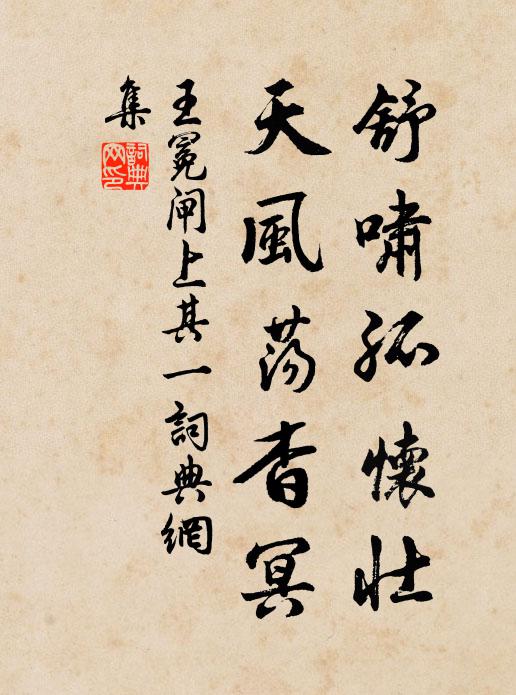 舒嘯孤懷壯
天風蕩杳冥
王冕闸上其一詞典網
集
詞典
网印